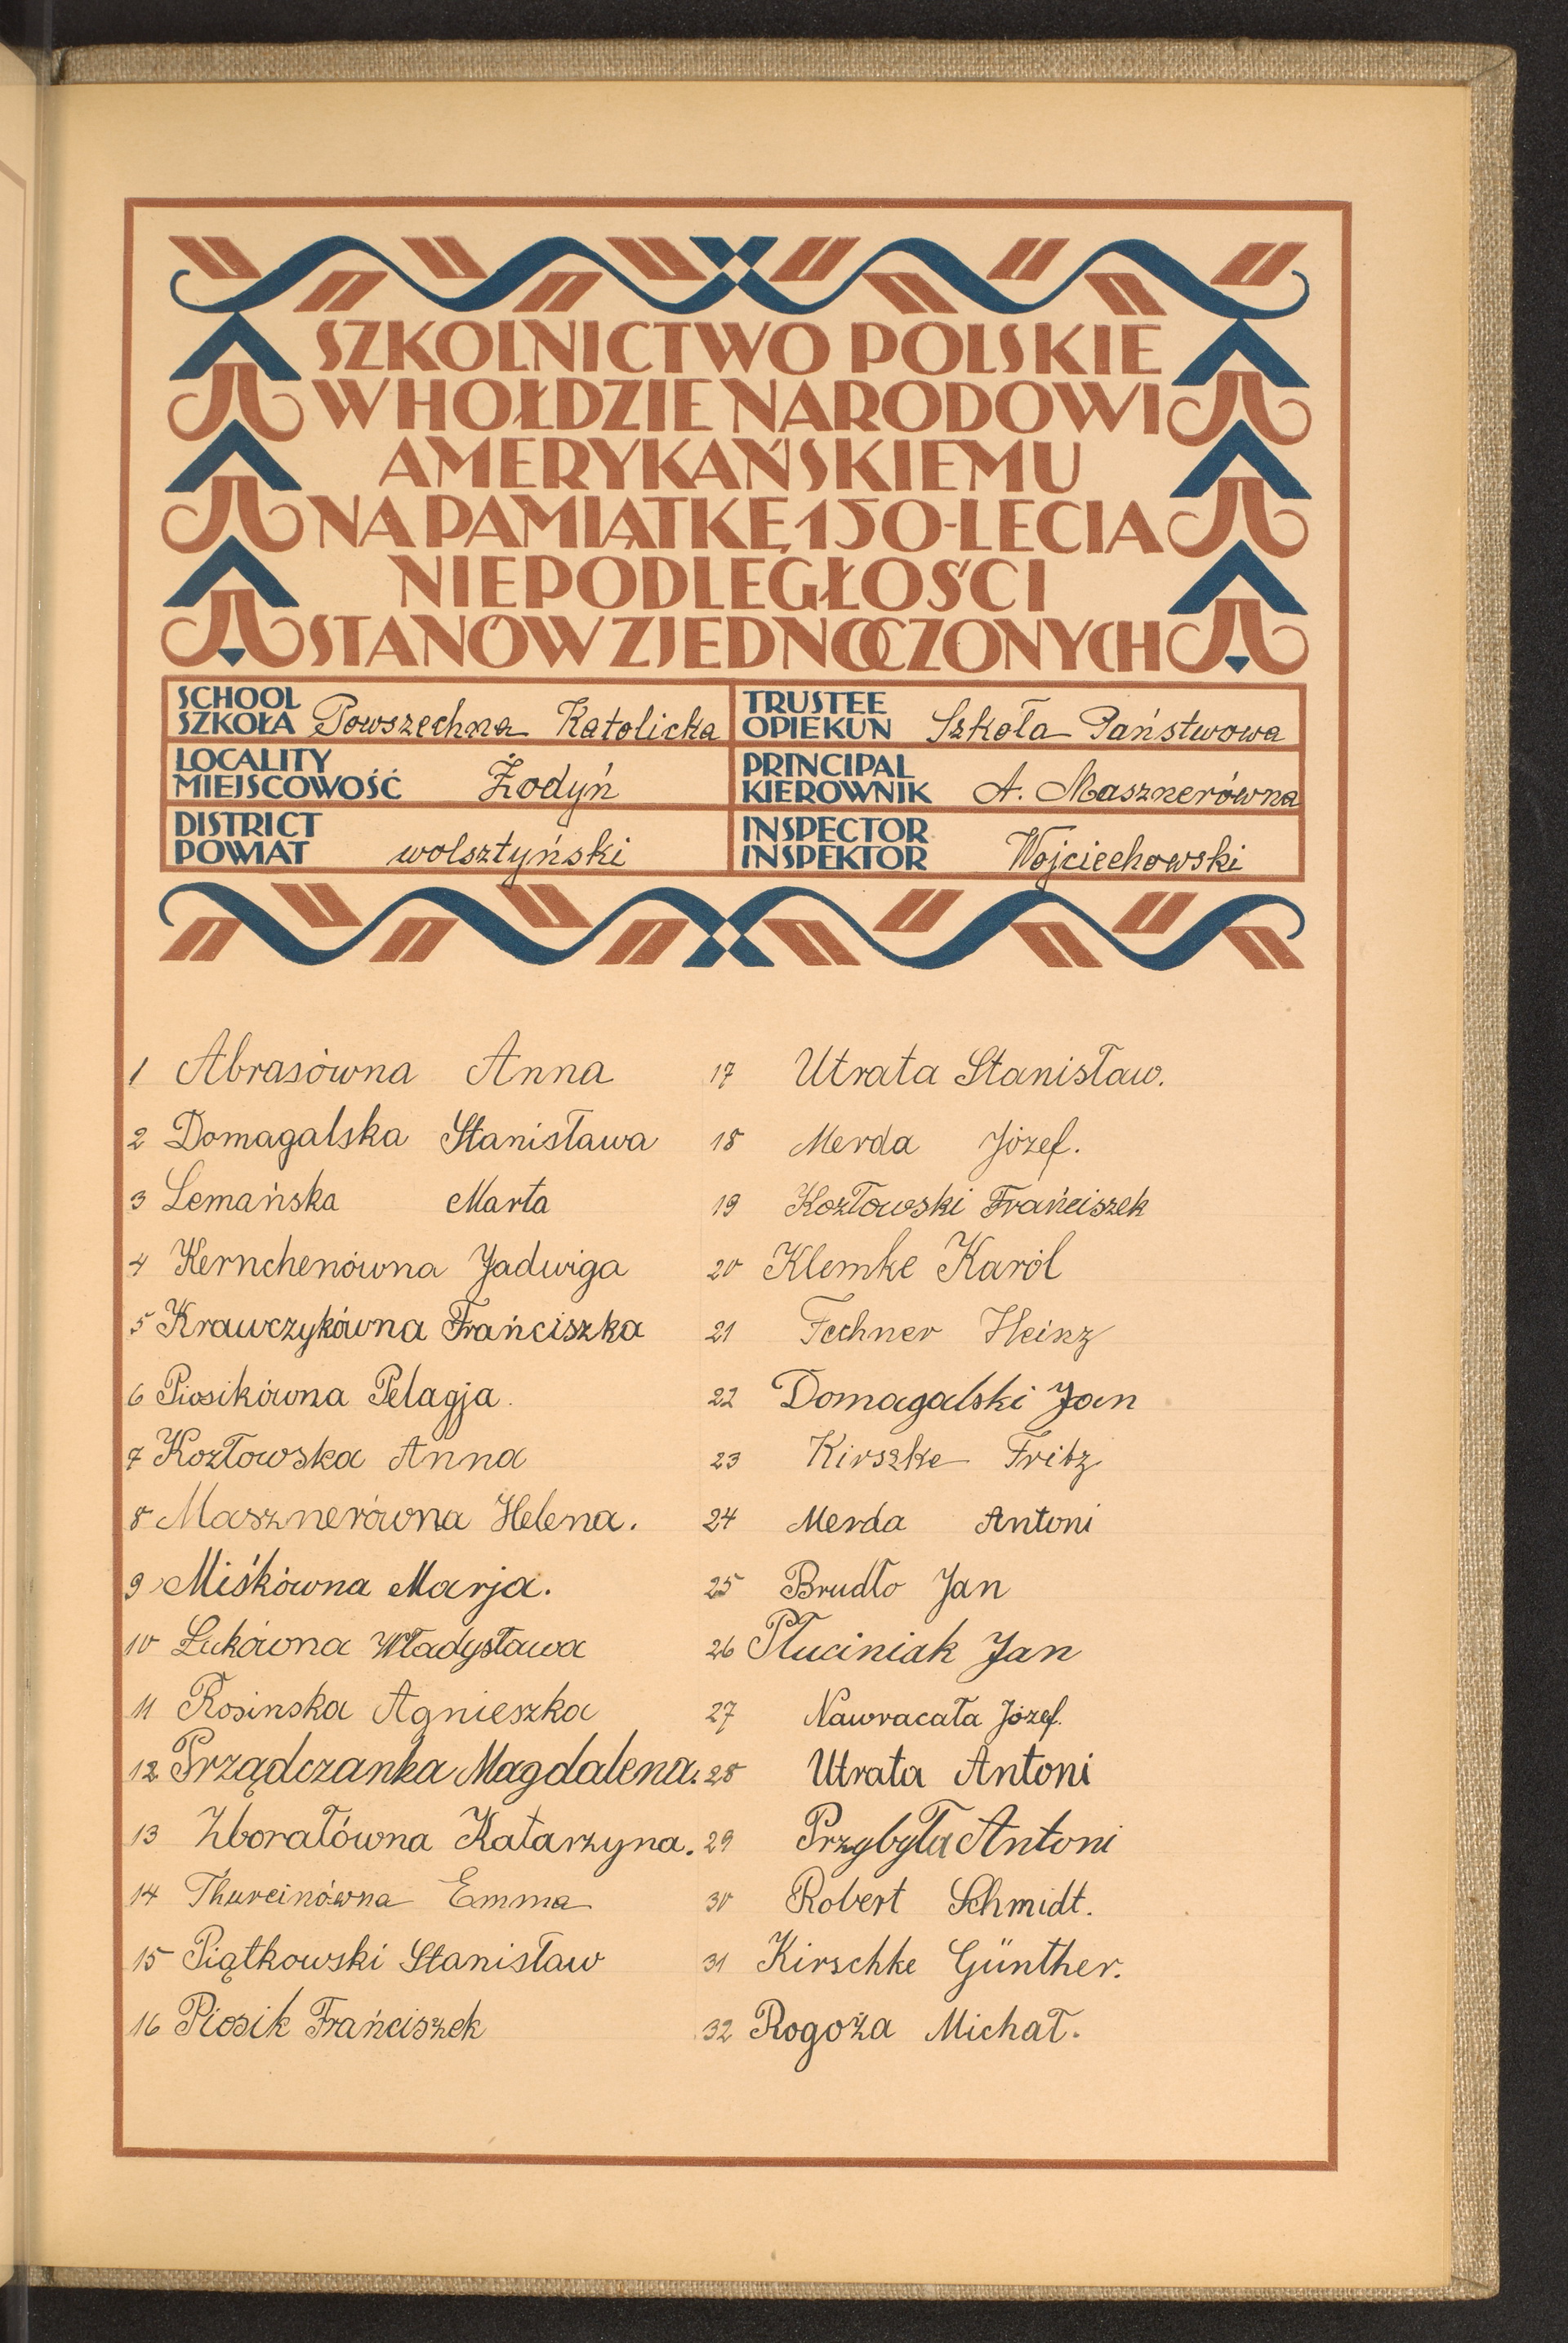 SZKOLNICTWO POLSKIE
W HOŁDZIE NARODOWI
AMERYKAŃSKIEMU
NA PAMIĄTKĘ 150-LECIA
NIEPODLEGŁOŚCI
STANÓW ZJEDNOCZONYCH
SCHOOL
SZKOŁA Powszechna Katolicka
TRUSTEE
OPIEKUN Szkoła Państwowa
LOCALITY
MIEJSCOWOŚĆ Żodyń
PRINCIPAL
KIEROWNIK A. Masznerówna
DISTRICT
POWIAT wolsztyński
INSPECTOR
INSPEKTOR Wojciechowski
1 Abrasówna Anna
2 Domagalska Stanisława
3 Lemańska Marta
4 Kernchenówna Jadwiga
5 Krawczykówna Frańciszka
6 Piosikówna Pelagja.
7 Kozłowska Anna
8 Masznerówna Helena.
9 Miśkówna Marja.
10 Lukówna Władysława
11 Rosinska Agnieszka
12 Prządczanka Magdalena.
13 Zborałówna Katarzyna.
14 Thureinówna Emma
15 Piątkowski Stanisław
16 Piosik Frańciszek
17 Utrata Stanisław.
18 Merda Józef.
19 Kozłowski Frańciszek
20 Klemke Karól
21 Fechner Heinz
22 Domagalski Jan
23 Kirszke Fritz
24 Merda Antoni
25 Brudło Jan
26 Płuciniak Jan
27 Nawracała Józef.
28 Utrata Antoni
29 Przybyła Antoni
30 Robert Schmidt.
31 Kirschke Günther.
32 Rogoża Michał.